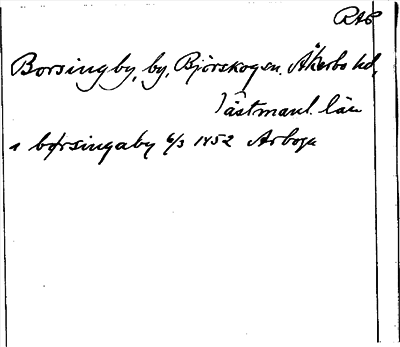 RAP
Borsingby, by, Björskogsn. Åkerbo hd,
Västmanl. län
a børsingaby 6/3 1452 Arboga